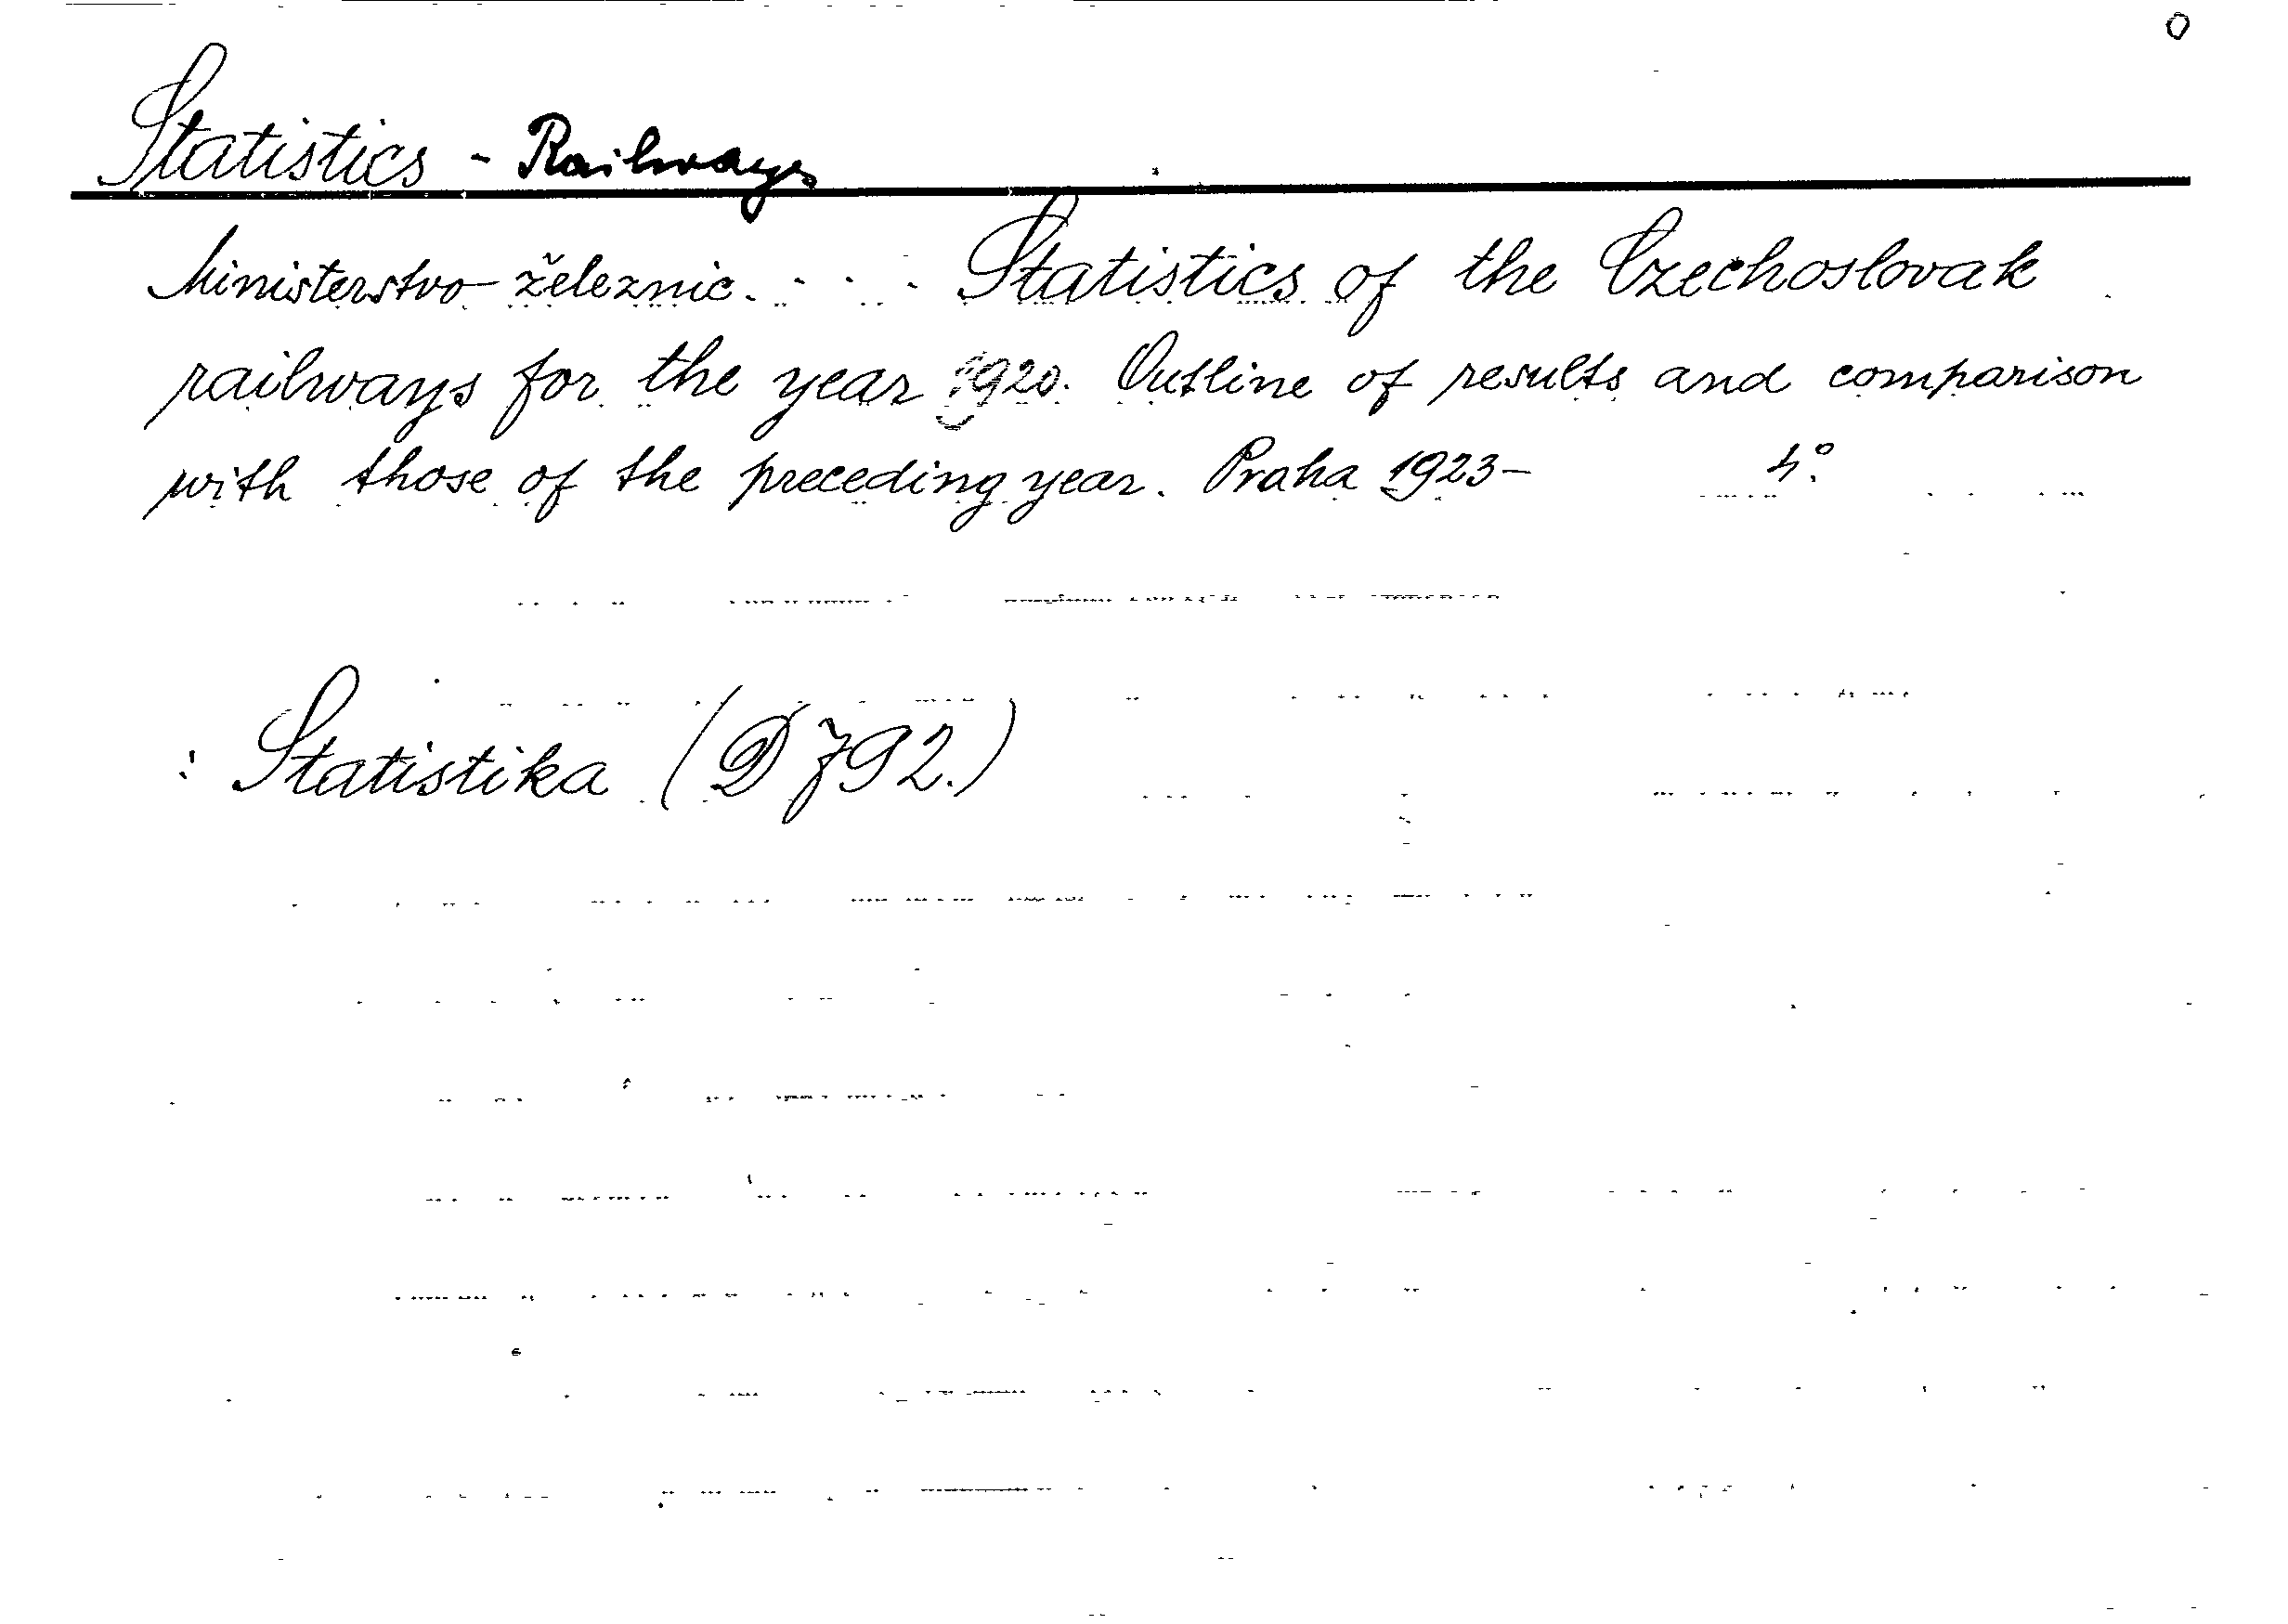 Statistics - Railways
Ministerstvo železnic. . . . Statistics of the Czechoslovak
railways for the year 1920. Outline of results and comparison
with those of the preceding year. Praha 1923- 4°.
: Statistika (D 792.)